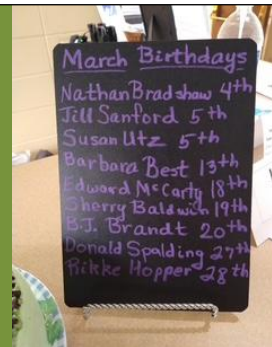 March Birthdays
Nathan Bradshaw 4th
Jill Sanford 5th
Susan Utz 5th
Barbara Best 13th
Edward McCarty 18th
Sherry Baldwin 19th
B.J. Brandt 20th
Donald Spalding 27th
Rikke Hopper 28th